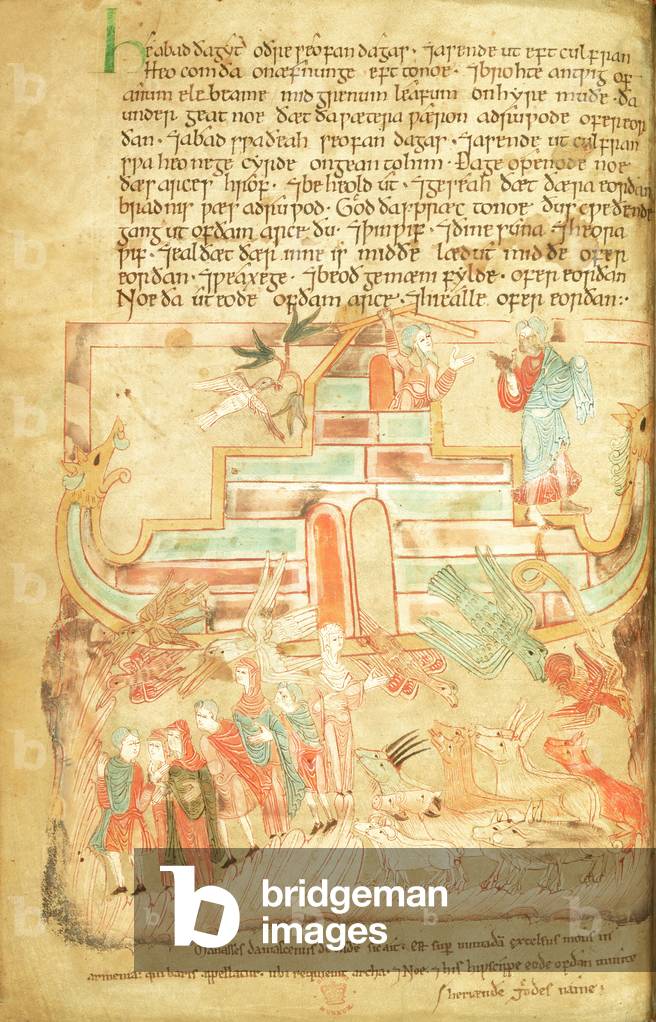 He abad ða gyt oðre seofan dagas · ⁊ asende ut eft culfran
Heo com ða on æfnunge eft to noe · ⁊ brohte an twig of
anum ele beame mid grenum leafum on hyre muðe · ða
under geat noe ðæt ða wæteru wæron adruwode ofer eor
ðan · ⁊ abad swa ðeah seofan dagas · ⁊ asende ut culfran
swa heo ne ge cyrde ongean to him · Ða ge openode noe
ðæs arces hrof · ⁊ be heold ut · ⁊ geseah ðæt ðæra eorðan
bradnis wæs adruwod · God ða spræc to noe ðus cweðende
gang ut of ðam arce · ðu · ⁊ þin wif · ⁊ ðine suna · ⁊ heora
wif · ⁊ eal ðæt ðær inne is mid ðe læd ut mid ðe ofer
eorðan · ⁊ weaxe ge · ⁊ beoð gemænifylde · ofer eorðan
Noe ða ut eode of ðam arce · ⁊ hi ealle ofer eorðan :·
damascenus sic ait · est excelsus mons in
armenia · qui baris appellatur · ubi requievit archa · ⁊ Noe · ⁊ his eode of ðan
godes name ·
b bridgeman
images